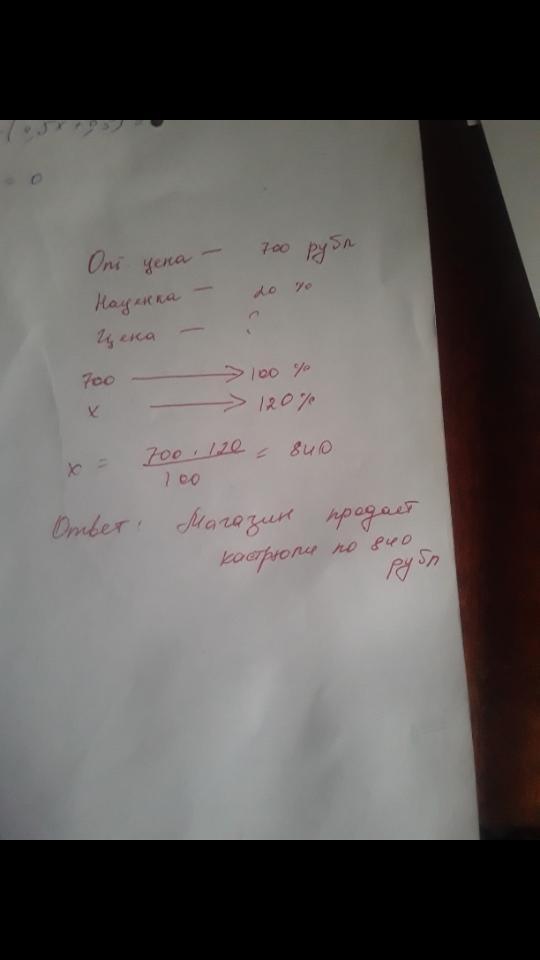 = 0
Опт. цена — 700 рубл
Наценка — 20 %
Цена — ?
700 → 100 %
x → 120 %
x = 700 · 120 / 100 = 840
Ответ: Магазин продает
кастрюли по 840
рубл